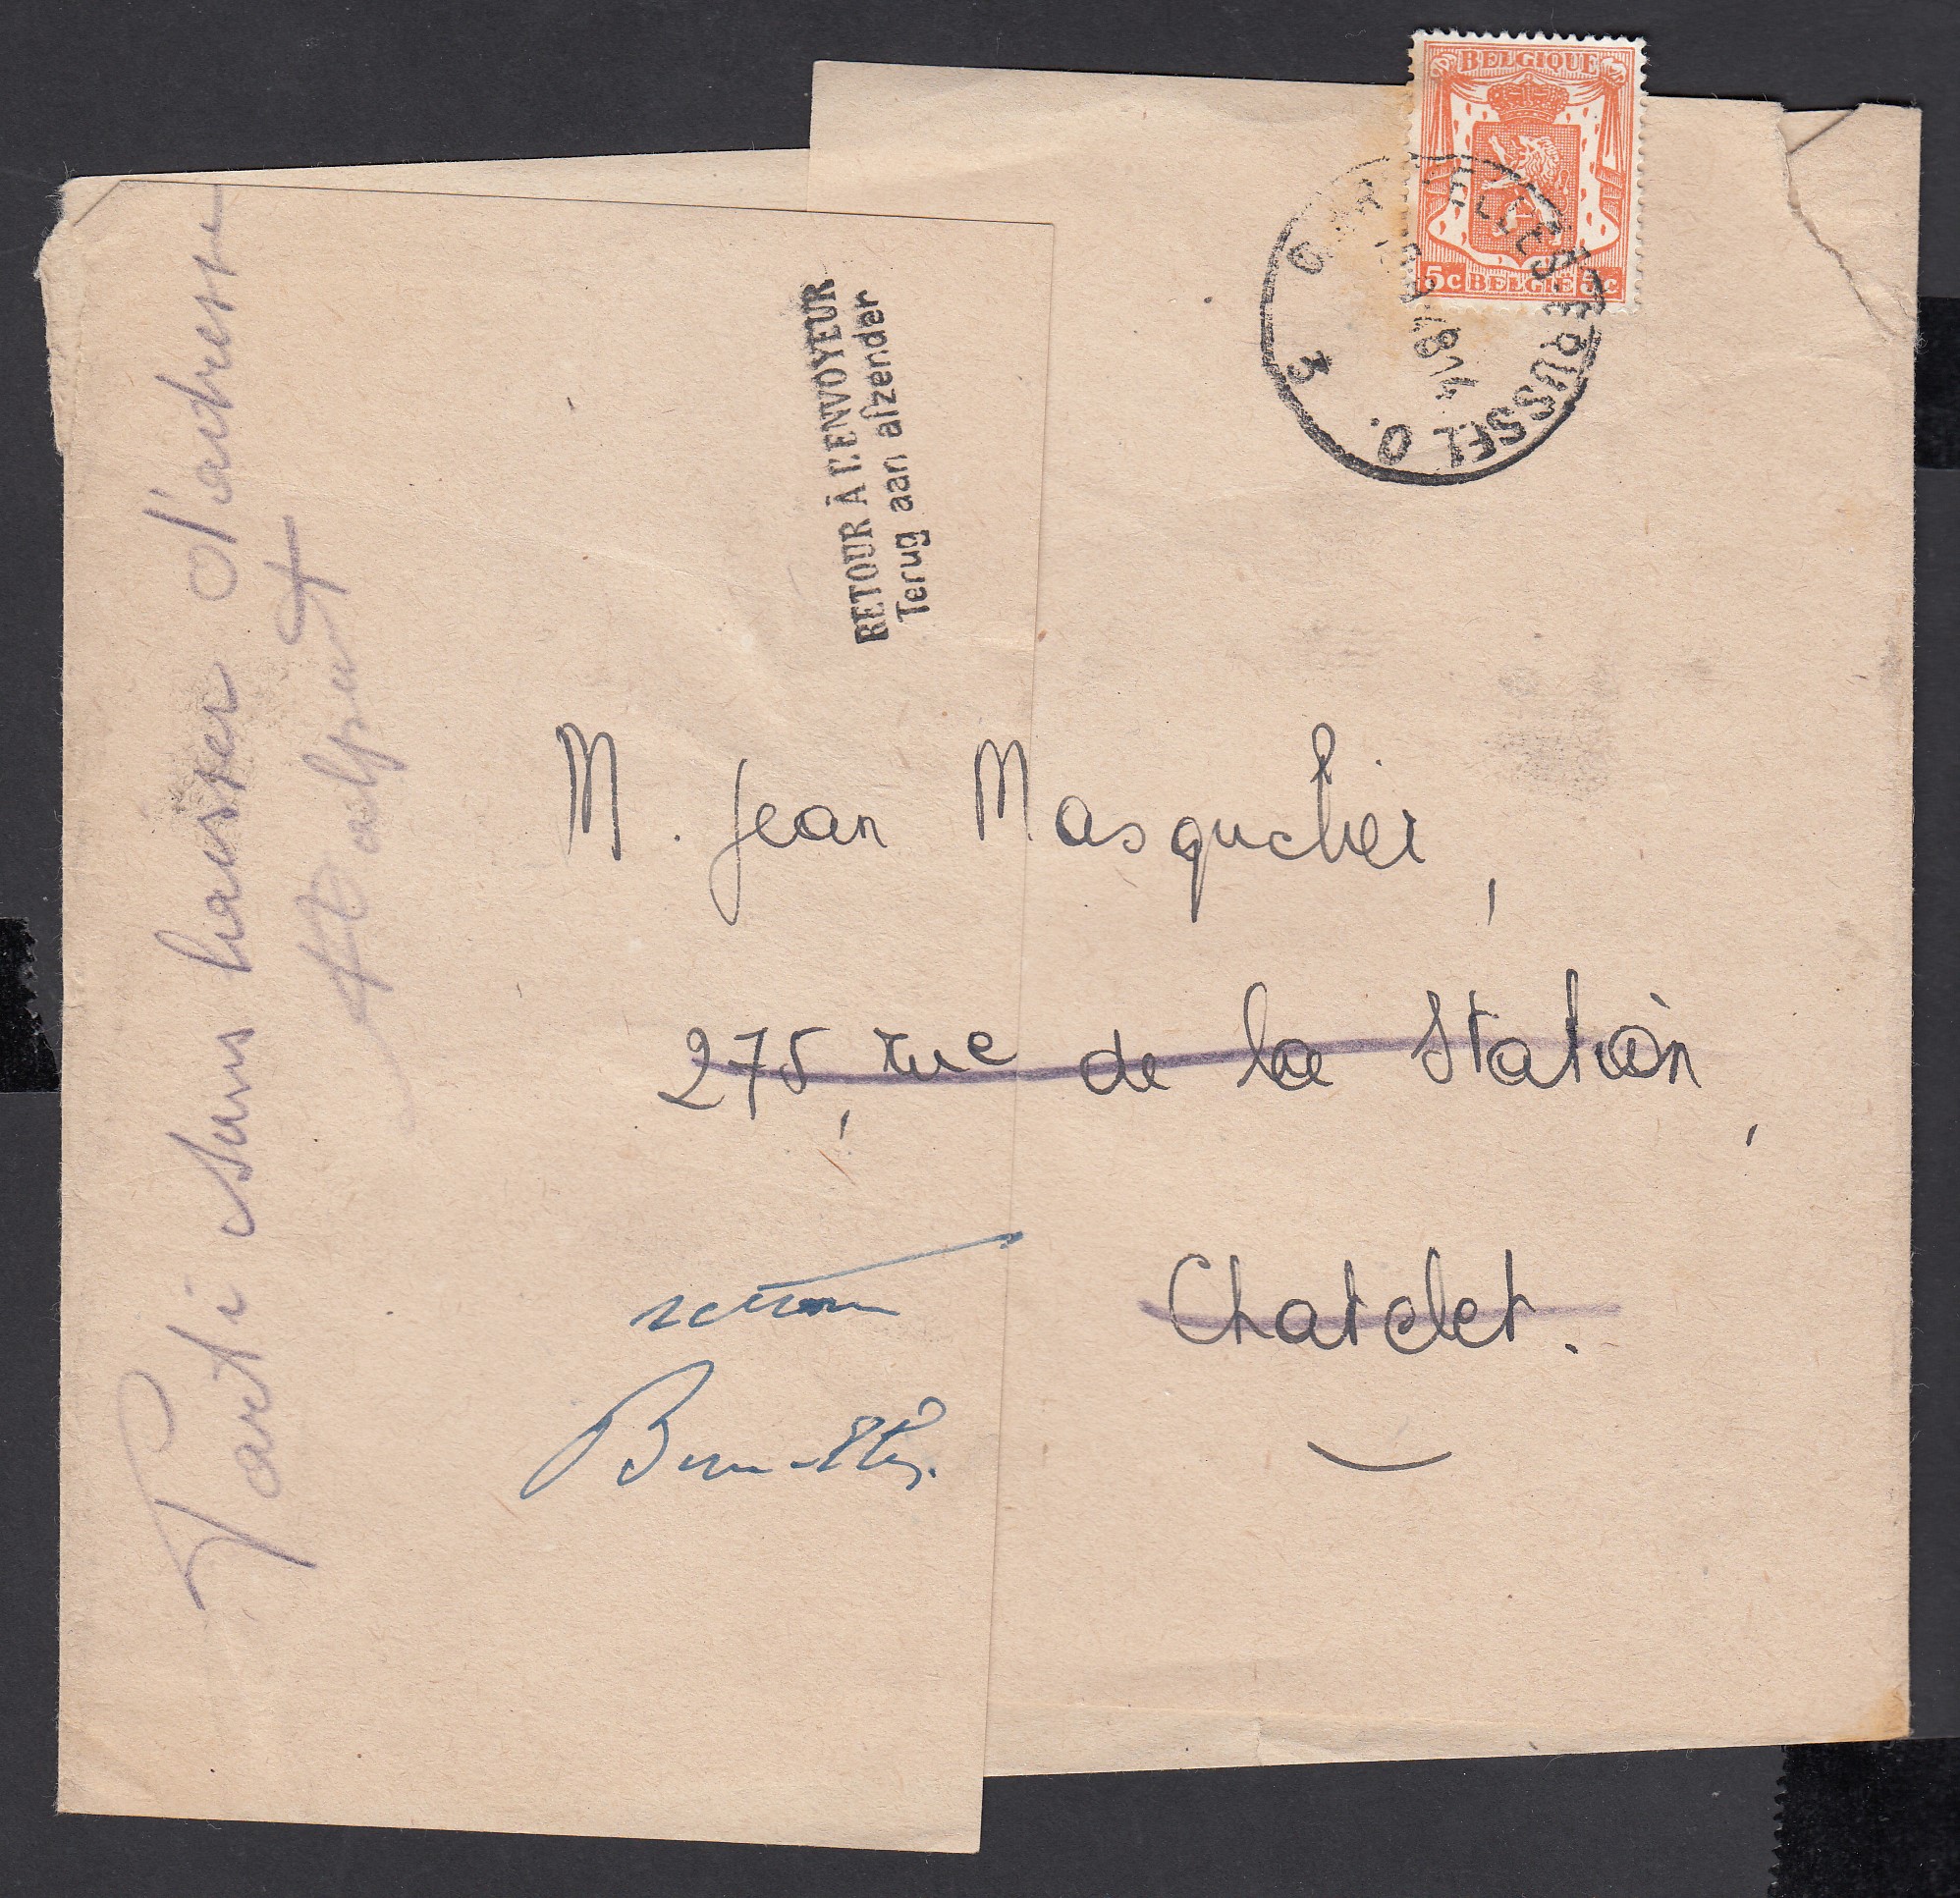 BELGIQUE
5c BELGIË 5c
BRUSSEL O.
3
RETOUR À L'ENVOYEUR
Terug aan afzender
Parti sans laisser d'adresse
M. Jean Masquelier,
275, rue de la Station,
Chatelet.
retour